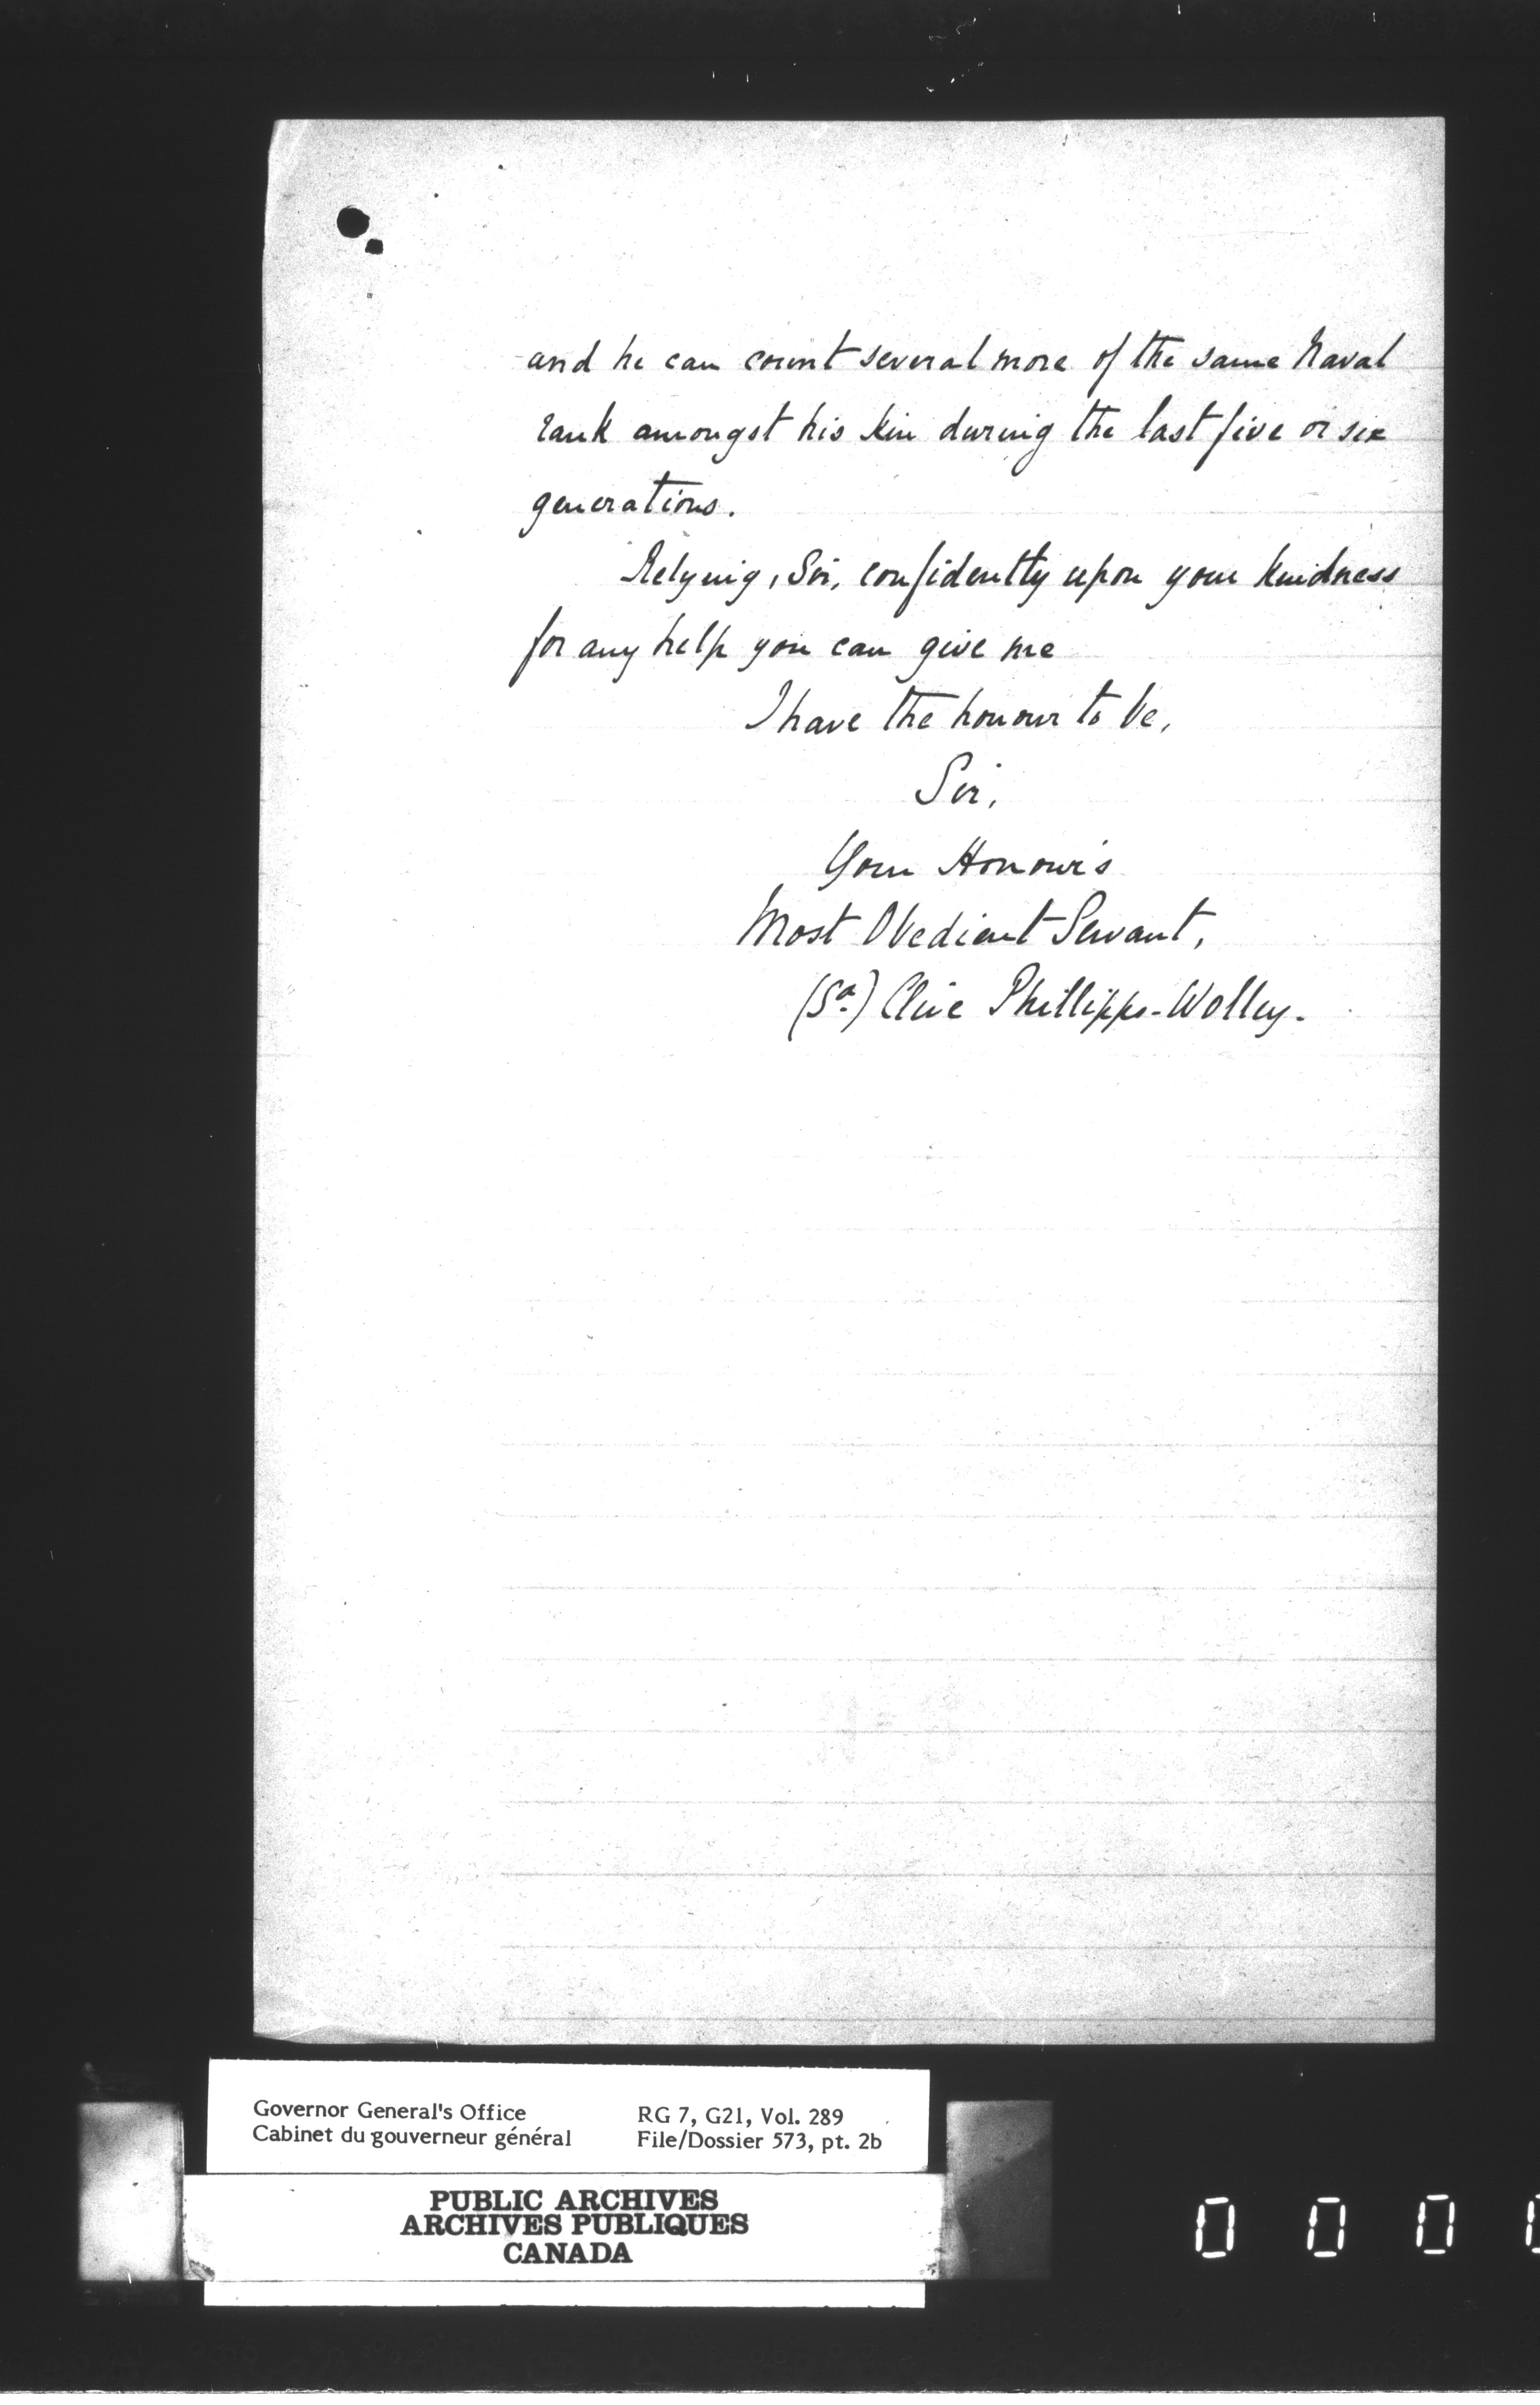 and he can count several more of the same Naval
rank amongst his kin during the last five or six
generations.
Relying, Sir, confidently upon your kindness
for any help you can give me
I have the honour to be,
Sir,
Your Honour's
Most Obedient Servant,
(Sd.) Clive Phillipps-Wolley.
Governor General's Office
Cabinet du gouverneur général
RG 7, G21, Vol. 289
File/Dossier 573, pt. 2b
PUBLIC ARCHIVES
ARCHIVES PUBLIQUES
CANADA
0 0 0